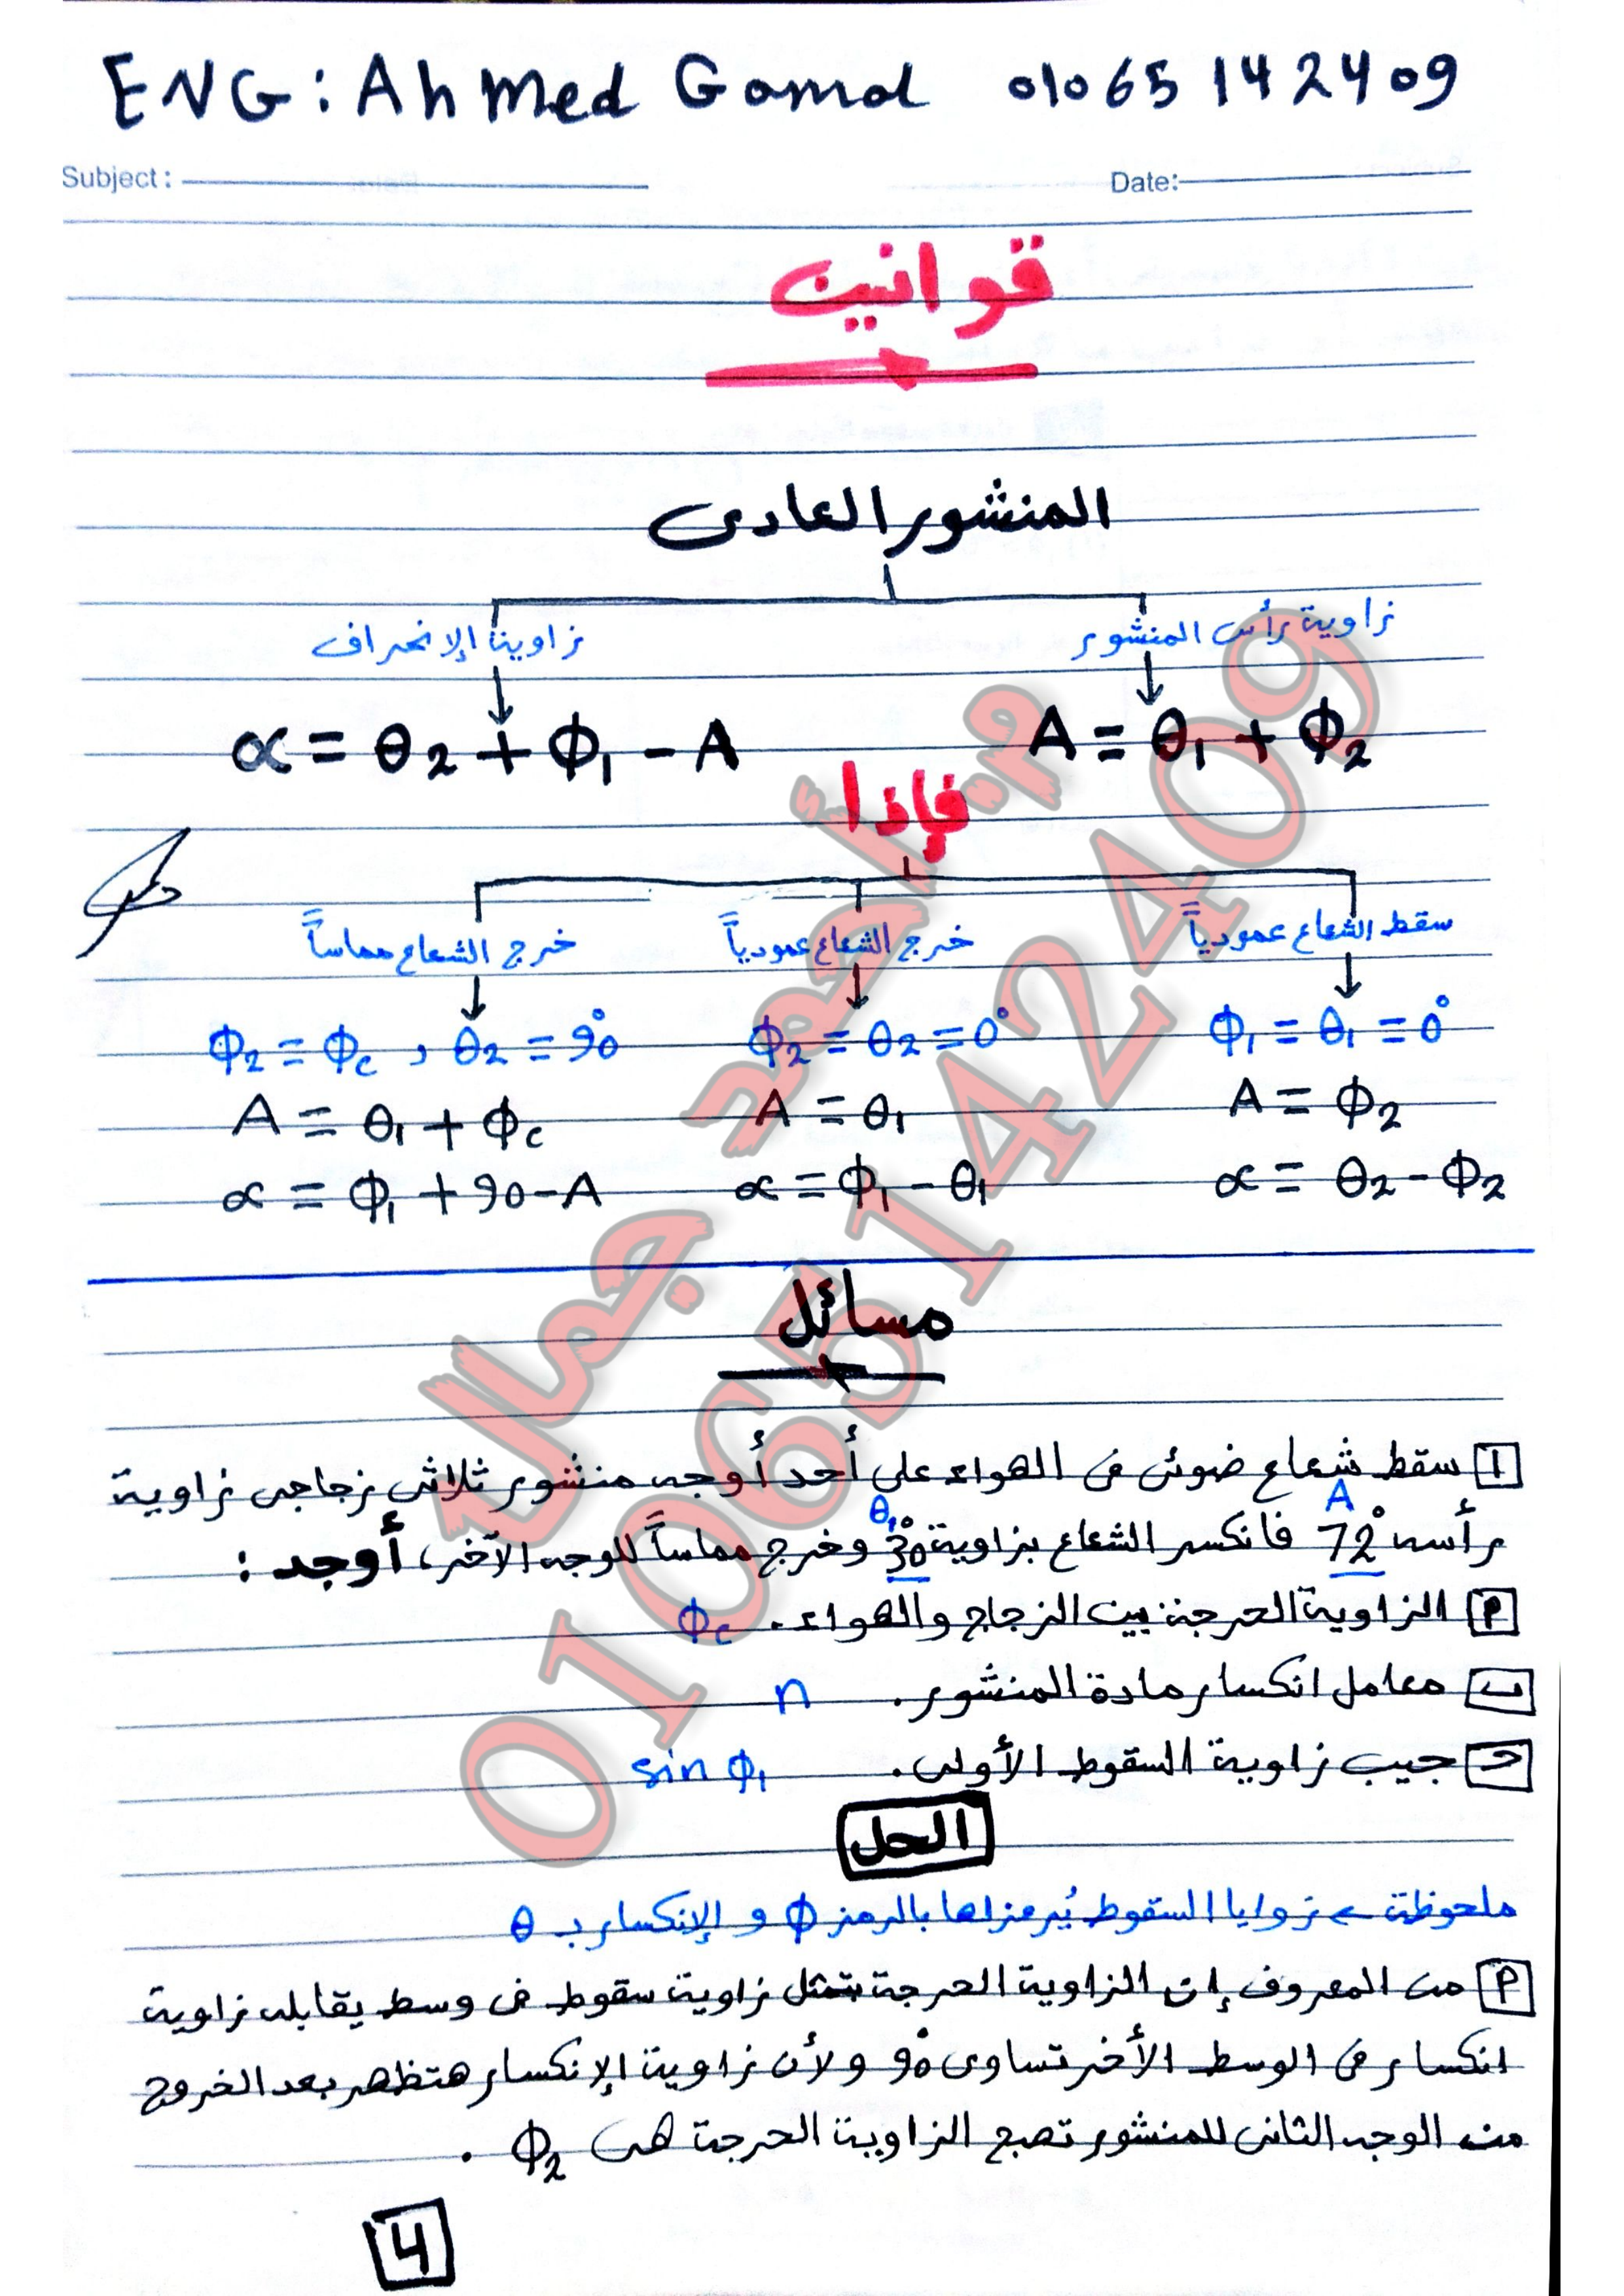 ENG: Ahmed Gamal 01065142409
Subject: Date:
قوانين
المنشور العادى
زاوية رأس المنشور زاوية الإنحراف
A = θ₁ + Φ₂ α = θ₂ + Φ₁ - A
فإذا
سقط الشعاع عمودياً خرج الشعاع عمودياً خرج الشعاع مماساً
Φ₁ = θ₁ = 0° Φ₂ = θ₂ = 0° Φ₂ = Φc , θ₂ = 90°
A = Φ₂ A = θ₁ A = θ₁ + Φc
α = θ₂ - Φ₂ α = Φ₁ - θ₁ α = Φ₁ + 90 - A
مسائل
1 سقط شعاع ضوئى فى الهواء على أحد أوجه منشور ثلاثى زجاجى زاوية
A θ₁
رأسه 72° فانكسر الشعاع بزاوية 30° وخرج مماساً للوجه الآخر، أوجد :
أ الزاوية الحرجة بين الزجاج والهواء. Φc
ب معامل انكسار مادة المنشور. n
ج جيب زاوية السقوط الأولى. sin Φ₁
الحل
ملحوظة ← زوايا السقوط يُرمز لها بالرمز Φ و الإنكسار بـ θ
أ من المعروف إن الزاوية الحرجة بتمثل زاوية سقوط فى وسط يقابله زاوية
انكسار فى الوسط الأخر تساوى 90° ولأن زاوية الإنكسار هتظهر بعد الخروج
من الوجه الثانى للمنشور تصبح الزاوية الحرجة هى Φ₂ .
4
م. أحمد جمال
01065142409